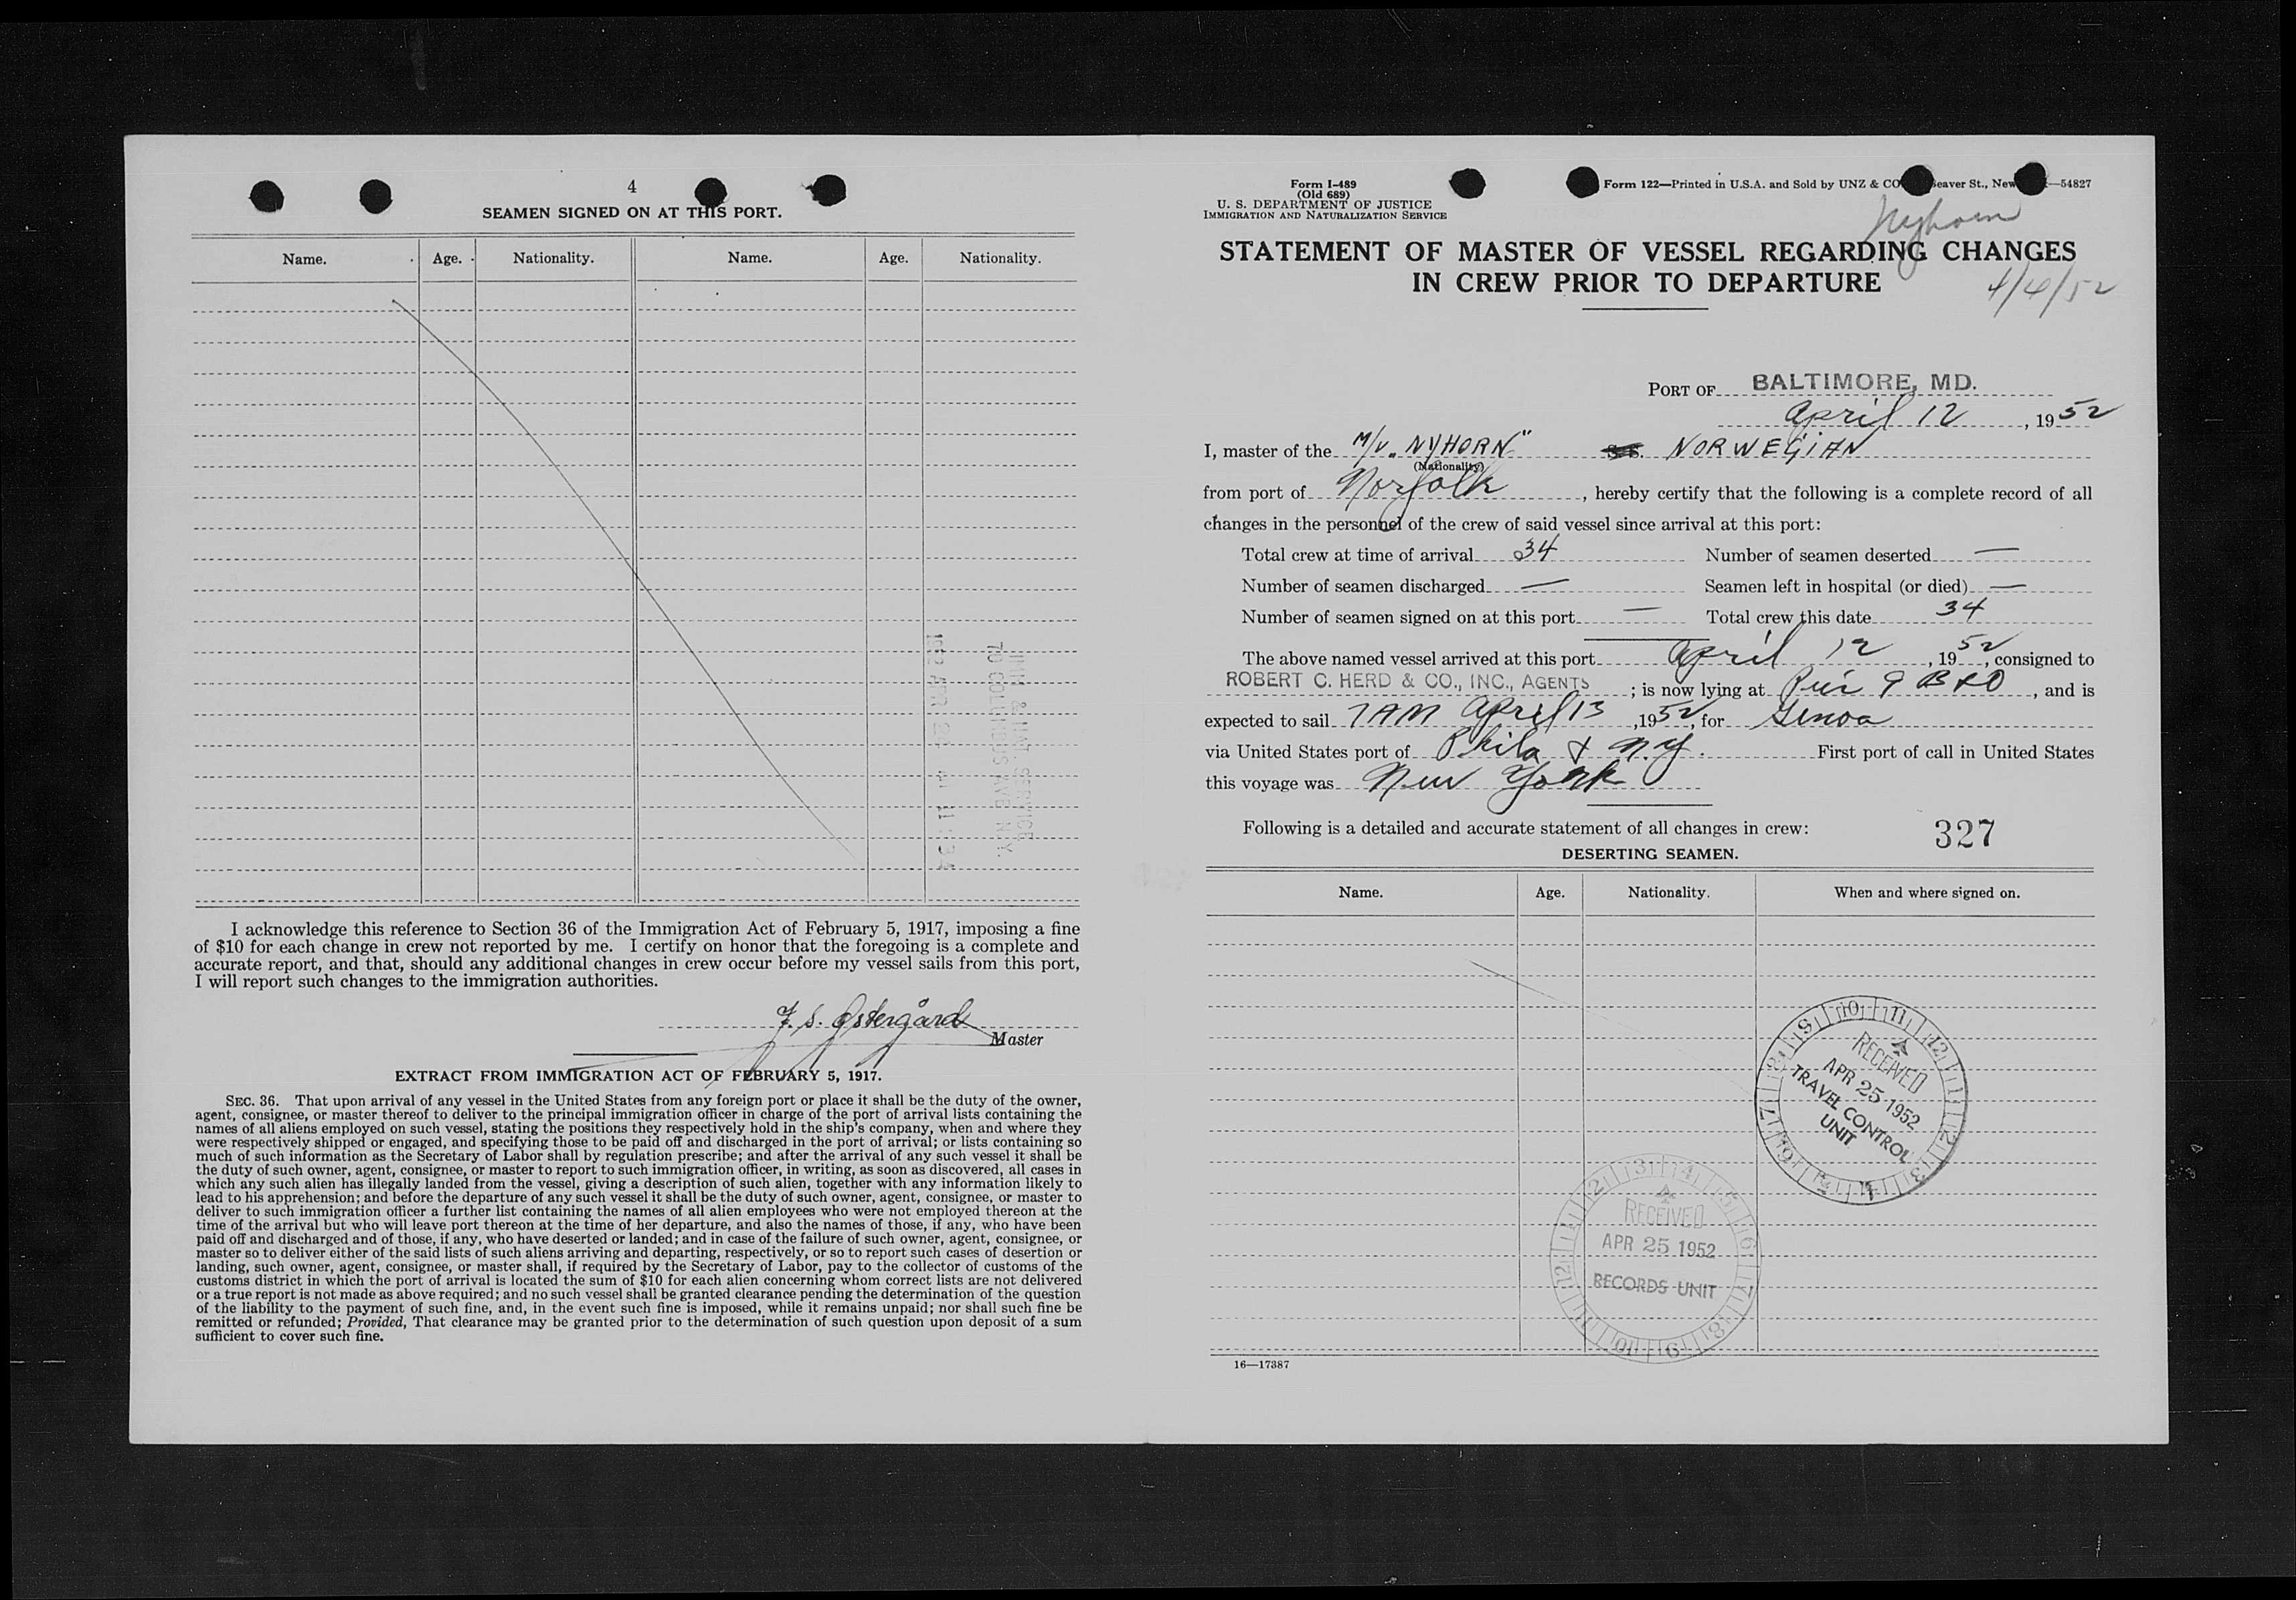 4
SEAMEN SIGNED ON AT THIS PORT.
Name. Age. Nationality. Name. Age. Nationality.
IMM. & NAT. SERVICE
70 COLUMBUS AVE N.Y.
1952 APR 25 AM 11:34
I acknowledge this reference to Section 36 of the Immigration Act of February 5, 1917, imposing a fine
of $10 for each change in crew not reported by me. I certify on honor that the foregoing is a complete and
accurate report, and that, should any additional changes in crew occur before my vessel sails from this port,
I will report such changes to the immigration authorities.
Østergård
Master
EXTRACT FROM IMMIGRATION ACT OF FEBRUARY 5, 1917.
SEC. 36. That upon arrival of any vessel in the United States from any foreign port or place it shall be the duty of the owner,
agent, consignee, or master thereof to deliver to the principal immigration officer in charge of the port of arrival lists containing the
names of all aliens employed on such vessel, stating the positions they respectively hold in the ship's company, when and where they
were respectively shipped or engaged, and specifying those to be paid off and discharged in the port of arrival; or lists containing so
much of such information as the Secretary of Labor shall by regulation prescribe; and after the arrival of any such vessel it shall be
the duty of such owner, agent, consignee, or master to report to such immigration officer, in writing, as soon as discovered, all cases in
which any such alien has illegally landed from the vessel, giving a description of such alien, together with any information likely to
lead to his apprehension; and before the departure of any such vessel it shall be the duty of such owner, agent, consignee, or master to
deliver to such immigration officer a further list containing the names of all alien employees who were not employed thereon at the
time of the arrival but who will leave port thereon at the time of her departure, and also the names of those, if any, who have been
paid off and discharged and of those, if any, who have deserted or landed; and in case of the failure of such owner, agent, consignee, or
master so to deliver either of the said lists of such aliens arriving and departing, respectively, or so to report such cases of desertion or
landing, such owner, agent, consignee, or master shall, if required by the Secretary of Labor, pay to the collector of customs of the
customs district in which the port of arrival is located the sum of $10 for each alien concerning whom correct lists are not delivered
or a true report is not made as above required; and no such vessel shall be granted clearance pending the determination of the question
of the liability to the payment of such fine, and, in the event such fine is imposed, while it remains unpaid; nor shall such fine be
remitted or refunded; Provided, That clearance may be granted prior to the determination of such question upon deposit of a sum
sufficient to cover such fine.
Form I-489
(Old 689)
U. S. DEPARTMENT OF JUSTICE
IMMIGRATION AND NATURALIZATION SERVICE
Form 122—Printed in U.S.A. and Sold by UNZ & CO Beaver St., New —54827
Nyhorn
4/4/52
STATEMENT OF MASTER OF VESSEL REGARDING CHANGES
IN CREW PRIOR TO DEPARTURE
PORT OF BALTIMORE, MD.
April 12, 1952
I, master of the M/V „NYHORN" S.S. NORWEGIAN
(Nationality)
from port of Norfolk, hereby certify that the following is a complete record of all
changes in the personnel of the crew of said vessel since arrival at this port:
Total crew at time of arrival 34 Number of seamen deserted —
Number of seamen discharged — Seamen left in hospital (or died) —
Number of seamen signed on at this port — Total crew this date 34
The above named vessel arrived at this port April 12, 1952, consigned to
ROBERT C. HERD & CO., INC., AGENTS; is now lying at Pier 9 B&O, and is
expected to sail 7 AM April 13, 1952, for Genoa
via United States port of Phila & N.Y. First port of call in United States
this voyage was New York
Following is a detailed and accurate statement of all changes in crew: 327
DESERTING SEAMEN.
Name. Age. Nationality. When and where signed on.
RECEIVED
APR 25 1952
TRAVEL CONTROL
UNIT
RECEIVED
APR 25 1952
RECORDS UNIT
16—17387